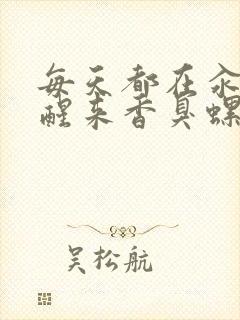 每天都在汆
醒来香臭螺
吴松航